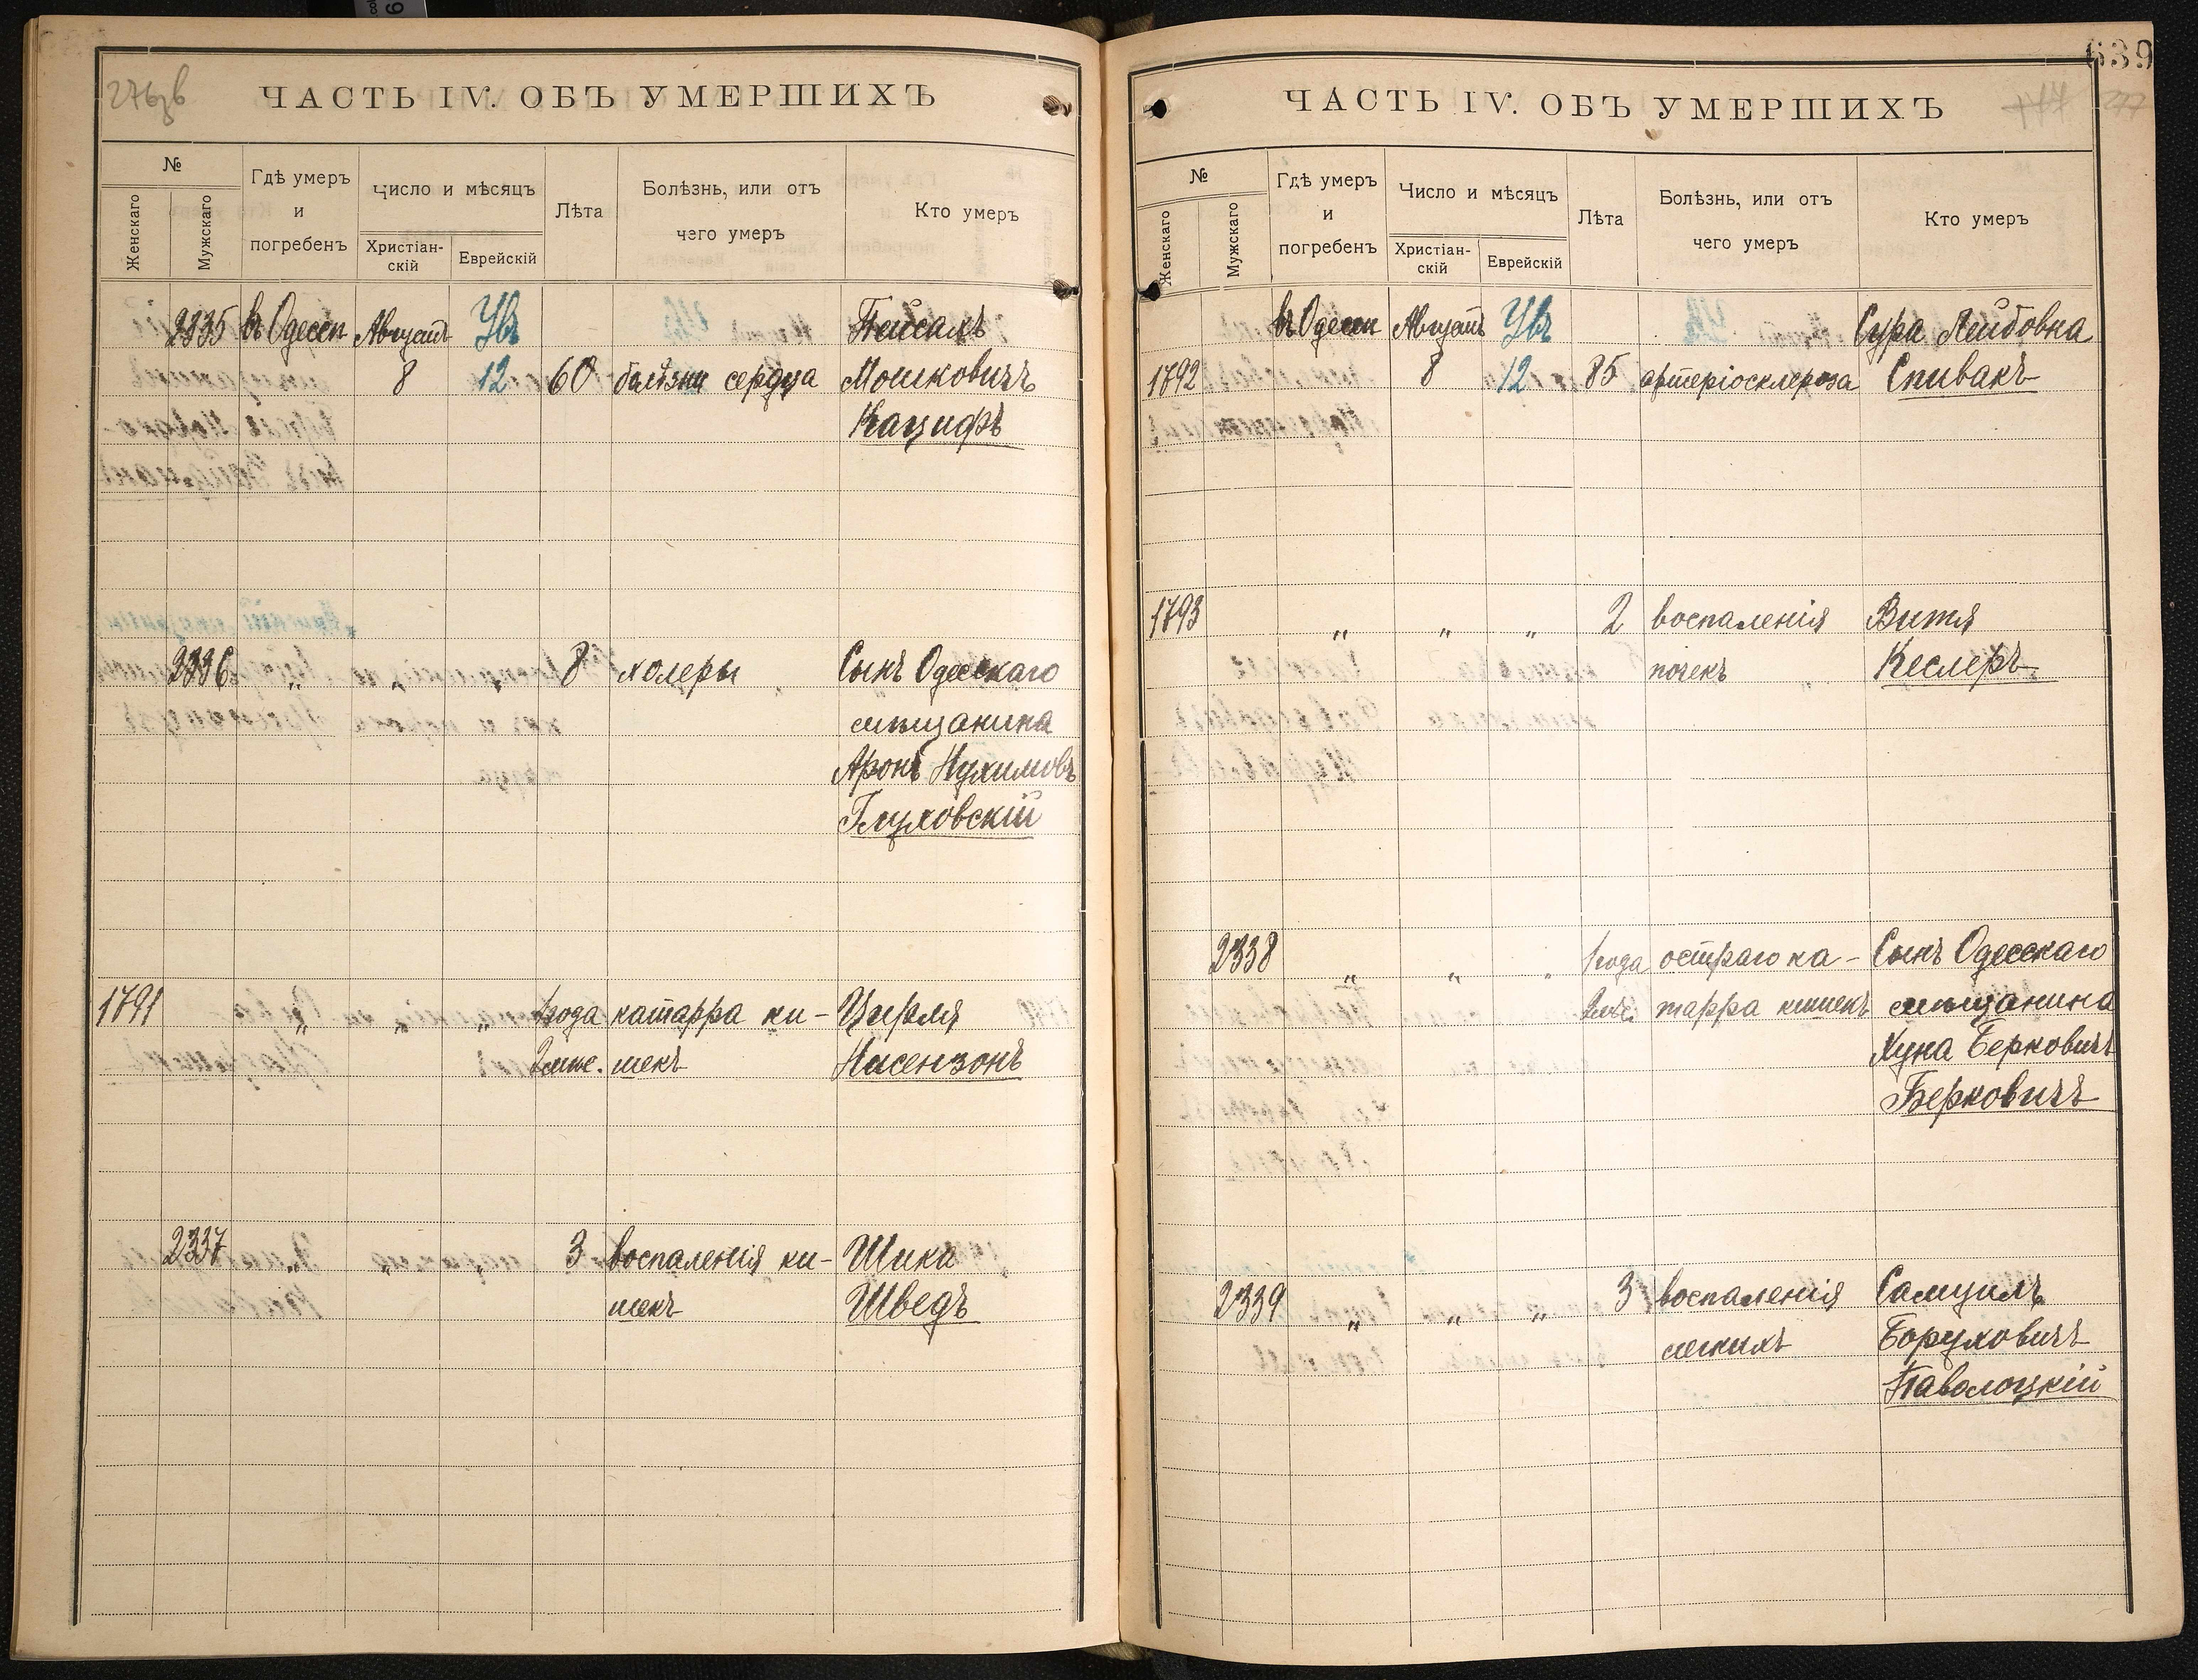 276 зв
ЧАСТЬ IV. ОБЪ УМЕРШИХЪ
№
Женскаго
Мужскаго
Гдѣ умеръ
и
погребенъ
Число и мѣсяцъ
Христіан-
скій
Еврейскій
Лѣта
Болѣзнь, или отъ
чего умеръ
Кто умеръ
2335 въ Одессѣ Августъ Увъ Пейсахъ
8 12 60 болѣзни сердца Мошковичъ
Кацифъ
2336 „ „ „ 8 холеры Сынъ Одесскаго
мѣщанина
Аронъ Нухимовъ
Глуховскій
1791 „ „ „ 1 года катарра ки- Цирля
2 мѣс. шекъ Нисензонъ
2337 „ „ „ 3 воспаленія ки- Шика
шекъ Шведъ
639
ЧАСТЬ IV. ОБЪ УМЕРШИХЪ
277
№
Женскаго
Мужскаго
Гдѣ умеръ
и
погребенъ
Число и мѣсяцъ
Христіан-
скій
Еврейскій
Лѣта
Болѣзнь, или отъ
чего умеръ
Кто умеръ
въ Одессѣ Августъ Увъ Сура Лейбовна
1792 8 12 85 артеріосклероза Спивакъ
1793 „ „ „ 2 воспаленія Витя
почекъ Кеслеръ
2338 „ „ „ 1 года остраго ка- Сынъ Одесскаго
тарра кишекъ мѣщанина
Хуна Берковичъ
Берковичъ
2339 „ „ „ 3 воспаленія Самуилъ
легкихъ Боруховичъ
Паволоцкій